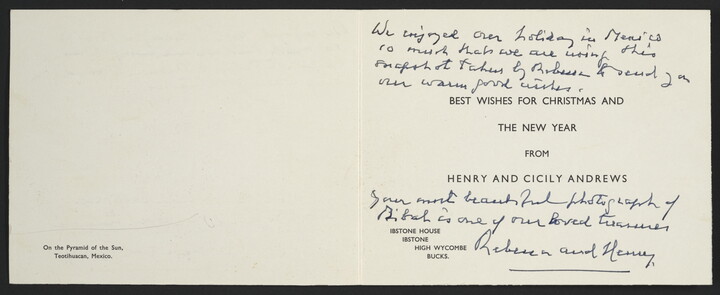 On the Pyramid of the Sun,
Teotihuacan, Mexico.
We enjoyed our holiday in Mexico
so much that we are using this
snapshot taken by Rebecca to send you
our warm good wishes.
BEST WISHES FOR CHRISTMAS AND
THE NEW YEAR
FROM
HENRY AND CICILY ANDREWS
Your most beautiful photograph of
is one of our loved treasures
IBSTONE HOUSE
IBSTONE
HIGH WYCOMBE
BUCKS.
Rebecca and Henry